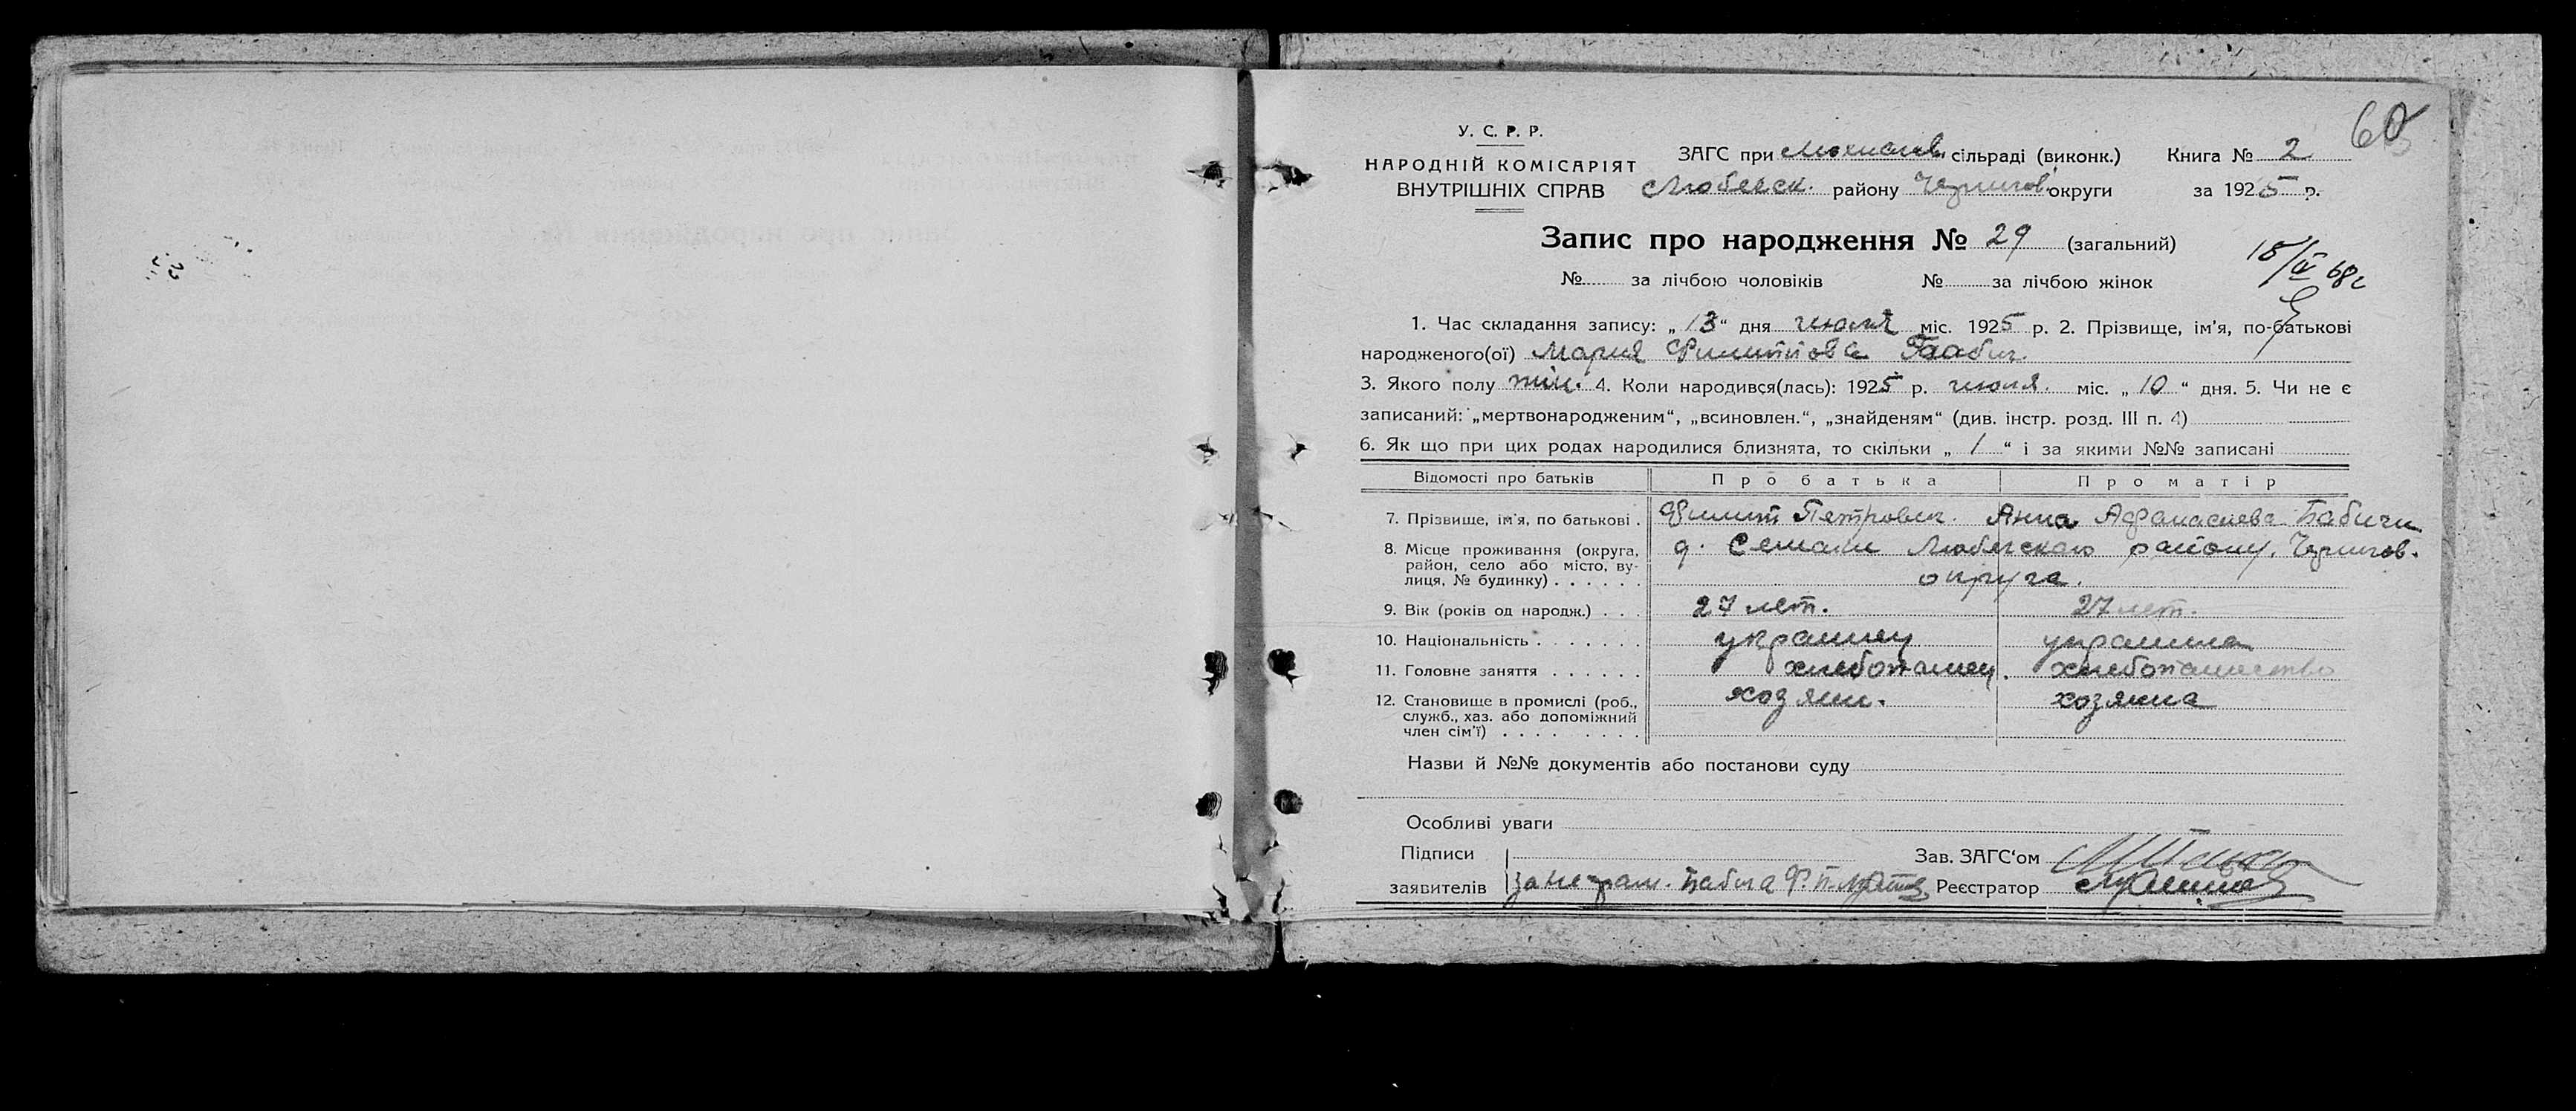 60
У. С. Р. Р.
НАРОДНІЙ КОМІСАРІЯТ
ВНУТРІШНІХ СПРАВ
ЗАГС при сільраді (виконк.) Книга № 2
Любечск. району Чернигов. округи за 1925 р.
Запис про народження № 29 (загальний)
№ за лічбою чоловіків № за лічбою жінок
15/IV 68 г
1. Час складання запису: „13“ дня июля міс. 1925 р. 2. Прізвище, ім'я, по-батькові
народженого(ої) Мария Филиппова Бабич
3. Якого полу жін. 4. Коли народився(лась): 1925 р. июля міс. „10“ дня. 5. Чи не є
записаний: „мертвонародженим“, „всиновлен.“, „знайденям“ (див. інстр. розд. III п. 4)
6. Як що при цих родах народилися близнята, то скільки „1“ і за якими №№ записані
Відомості про батьків Про батька Про матір
7. Прізвище, ім'я, по батькові . Филип Петрович. Анна Афанасиева Бабичи
8. Місце проживання (округа, район, село або місто, ву-
лиця, № будинку) . . . . . . д. Семаки Любечского району, Чернигов.
округа.
9. Вік (років од народж.) . . . 27 лет. 27 лет.
10. Національність . . . . . . . украинец украинка
11. Головне заняття . . . . . . хлебопашец. хлебопашество
12. Становище в промислі (роб.,
служб., хаз. або допоміжний
член сім'ї) . . . . . . . . . хозяин. хозяика
Назви й №№ документів або постанови суду
Особливі уваги
Підписи Зав. ЗАГС'ом
заявителів за неграм. Бабича Ф. П. Реєстратор